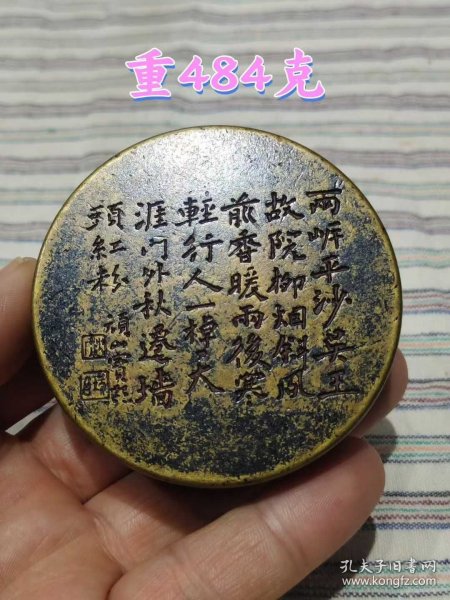 重484克
兩岍平沙吳王
故院柳烟斜风
前香暖雨後寒
輕行人一棹天
涯门外秋遷墙
頭紅粉
孔夫子旧书网
www.kongfz.com